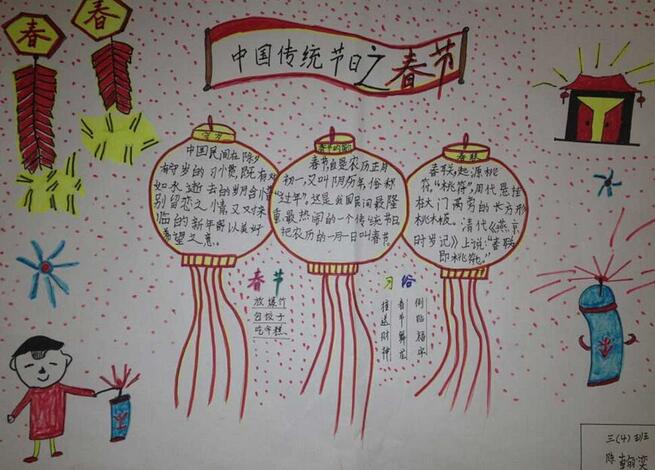 春
春
中国传统节日之春节
守岁
中国民间在除夕
有守岁的习惯,既有对
如水逝去的岁月含惜
别留恋之情,又对来
临的新年寄以美好
希望之意。
春节
春节,也是农历正月
初一,又叫阴历年,俗称
“过年”。这是我国民间最隆
重、最热闹的一个传统节日
把农历的一月一日叫春节。
春联
春联,起源桃
符,“桃符”,周代悬挂
在大门两旁的长方形
桃木板。清代《燕京
时岁记》上说:“春联
即桃符。”
春节
习俗
放爆竹
包饺子
吃年糕
倒贴福字
春牛舞龙
接送财神
三(4)班
陈翰奕